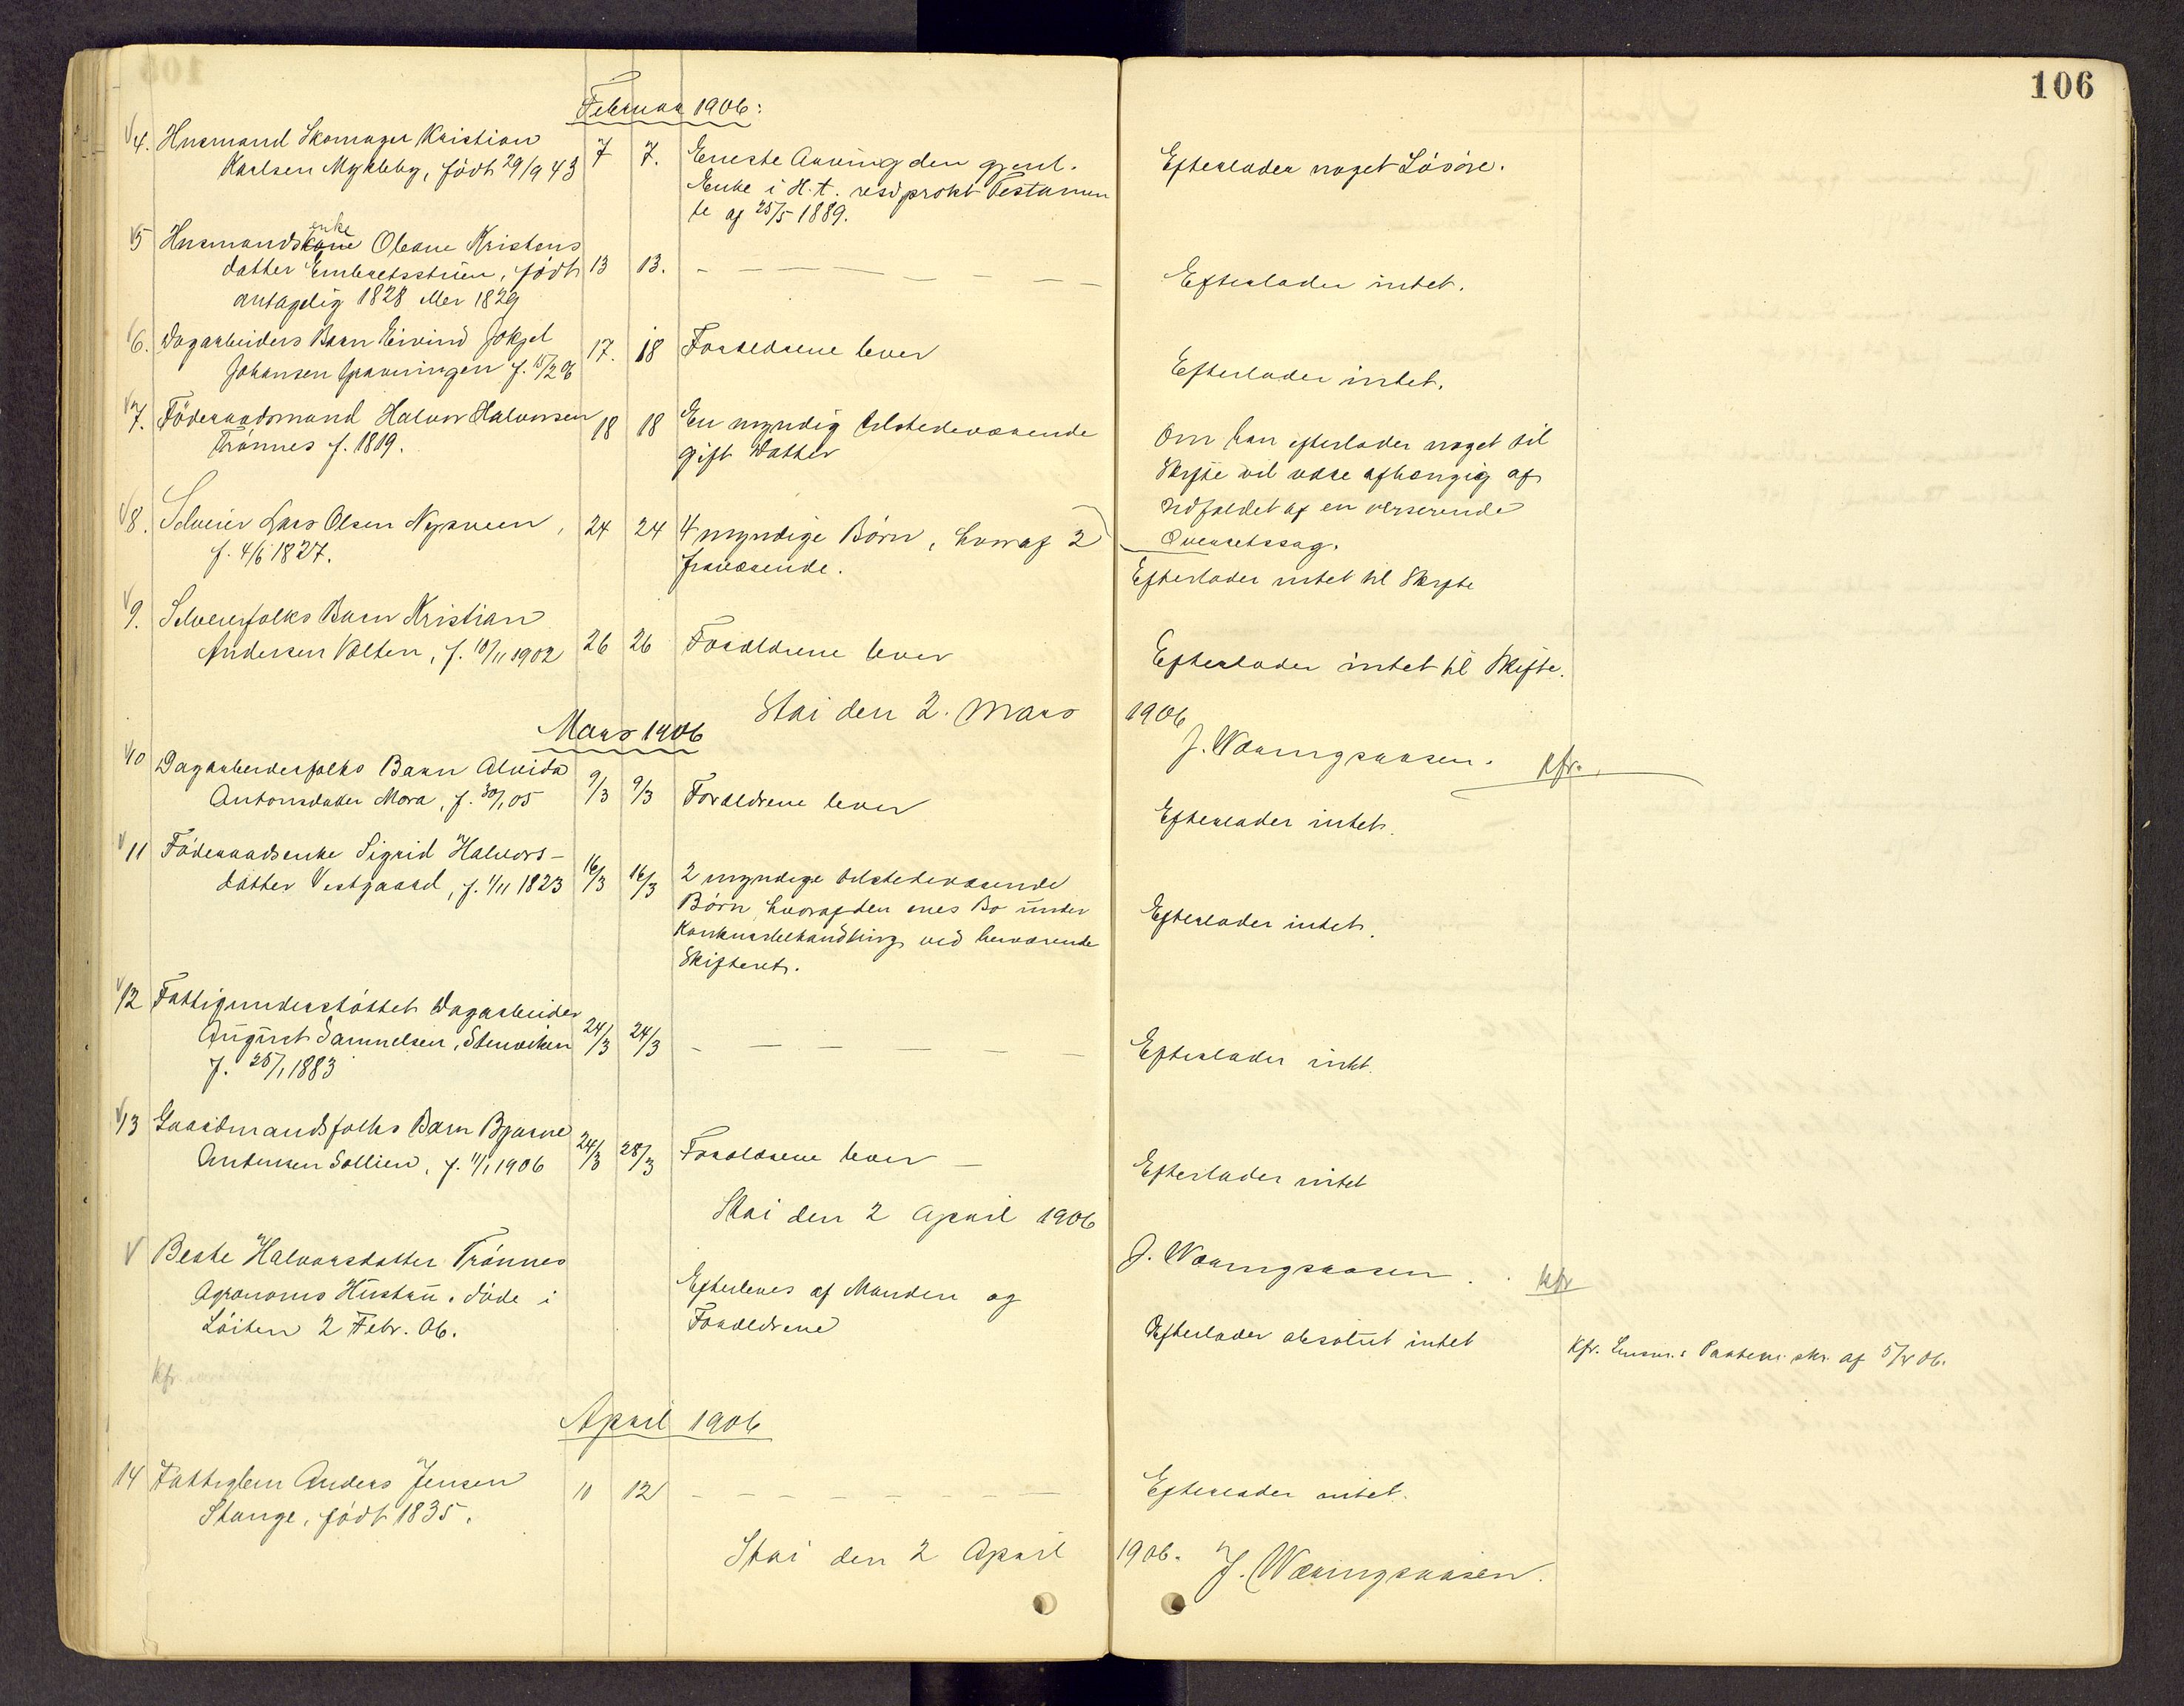 106
Februar 1906:
4. Husmand Skomager Kristian
Karlsen Mykleby, född 29/9 43
7 7.
Eneste Arving den gjenl.
Enke i H. t. resiprokt Testamen
te af 25/5 1889.
Efterlader noget Lösöre.
5 Husmandskone enke Oleane Kristens
datter Embretsstuen, födt
antagelig 1828 eller 1829
13 13.
Efterlader intet.
6. Dagarbeiders Barn Eivind
Johansen f. 15/2 06
17. 18
Forældrene lever
Efterlader intet.
7. Föderaadsmand Halvor Halvorsen
Trönnes f. 1819.
18 18
En myndig tilstedeværende
gift Datter
Om han efterlader noget til
Skifte vil være afhængig af
Udfaldet af en verserende
Overretssag.
8. Selveier Lars Olsen Nysveen,
f. 4/6 1827.
24 24
4 myndige Börn, hvoraf 2
fraværende.
Efterlader intet til Skifte
9. Selveierfolks Barn Kristian
Andersen Volten, f. 10/11 1902
26 26
Forældrene lever
Efterlader intet til Skifte.
Stai den 2. Mars 1906
J. Wæringsaasen. kfr.
Mars 1906
10 Dagarbeiderfolks Barn Alvida
Antonsdatter Mora, f. 30/1 05
9/3 9/3
Forældrene lever
Efterlader intet.
11 Föderaadsenke Sigrid Halvors-
datter Vestgaard, f. 1/11 1823
16/3 16/3
2 myndige tilstedeværende
Börn, hvoraf den enes Bo under
Konkursbehandling ved herværende
Skifteret.
Efterlader intet.
12 Fattigunderstöttet Dagarbeider
August Samuelsen, Stenviken
f. 25/1 1883
24/3 24/3
Efterlader intet.
13 Gaardmandsfolks Barn Bjarne
Antonsen Sollien, f. 11/1 1906
24/3 28/3
Forældrene lever
Efterlader intet
Stai den 2 April 1906
J. Wæringsaasen. kfr
Beate Halvorsdatter Trönnes
Agronoms Hustru. döde i
Löiten 2 Febr. 06.
Efterleves af Manden og
Forældrene
Efterlader absolut intet
Kfr. Lensm.s skr. af 5/4 06.
kfr
April 1906
14 Fattiglem Anders Jensen
Stange, födt 1835.
10 12
Efterlader intet.
Stai den 2 April 1906. J. Wæringsaasen.